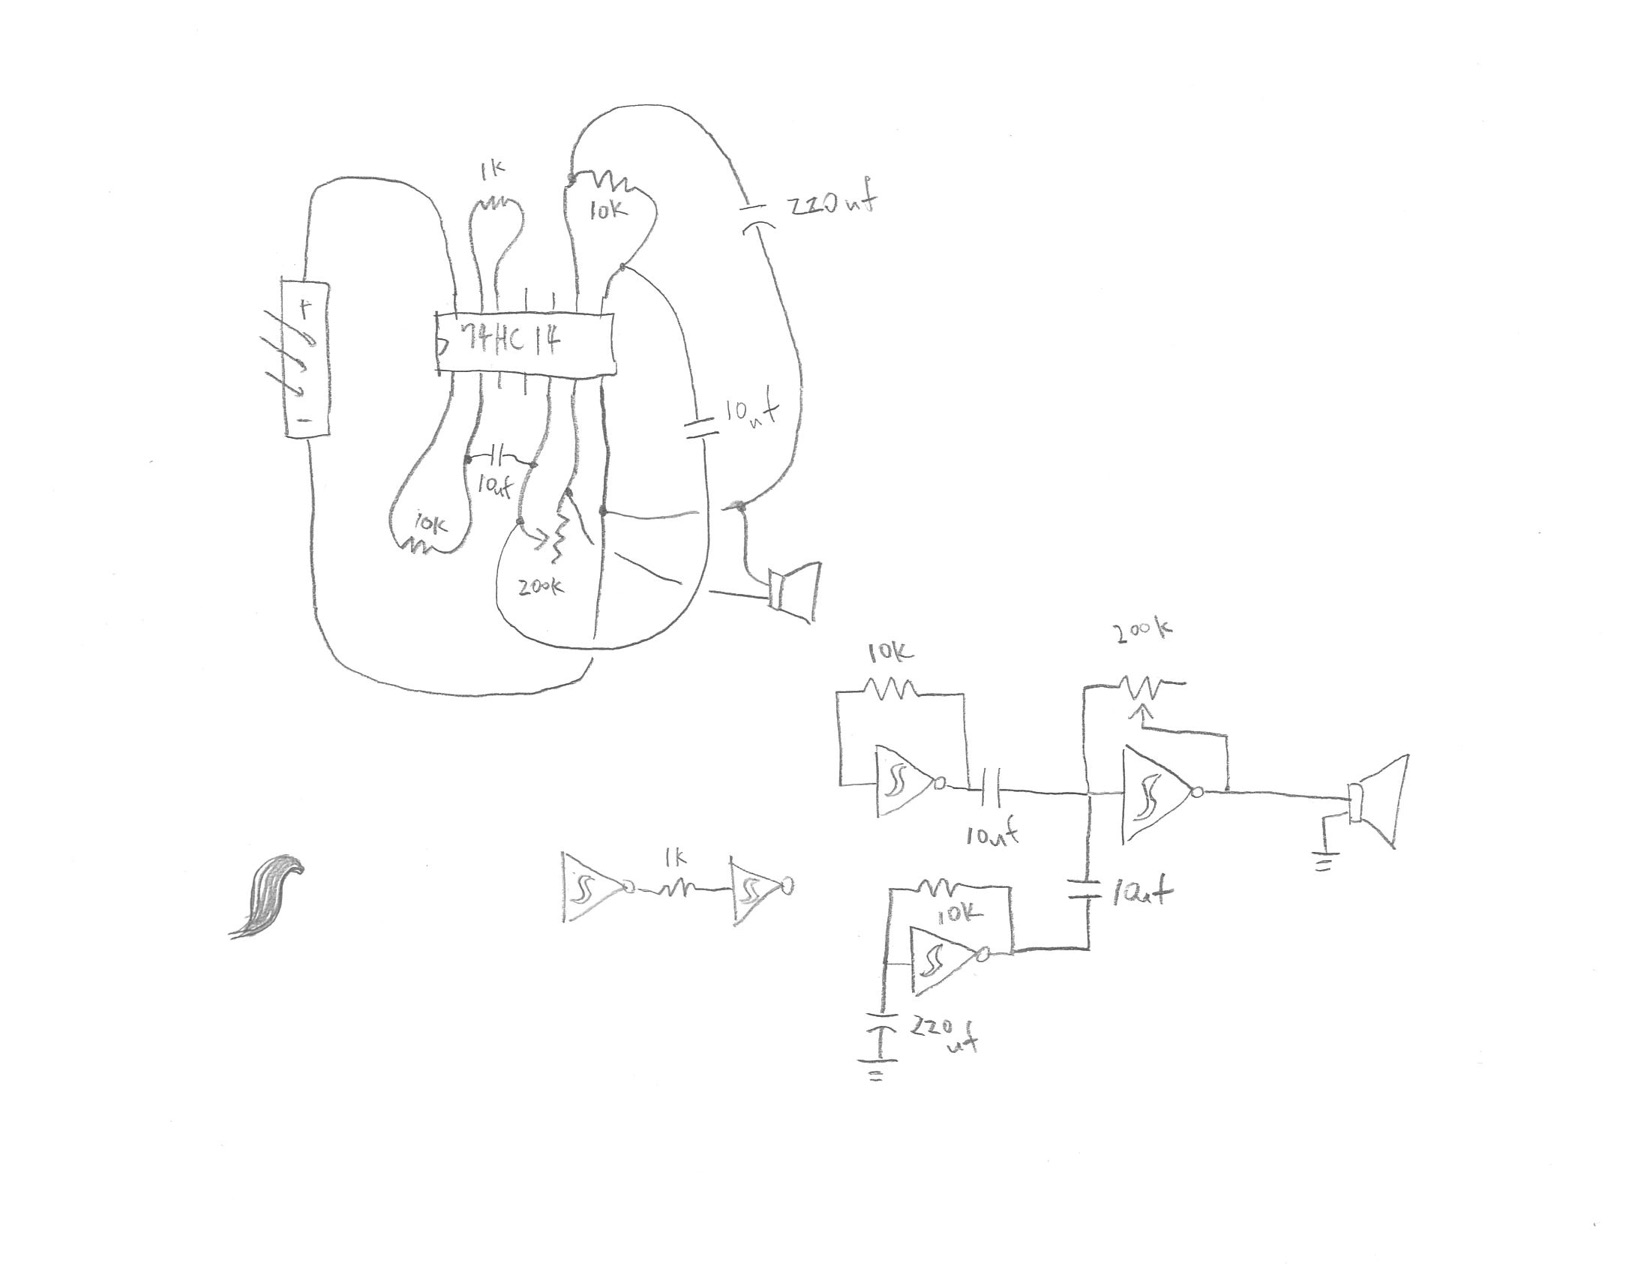 1K
10K
220uf
+
74HC14
-
10uf
10uf
10K
200K
200K
10K
10uf
1K
10uf
10K
220
uf